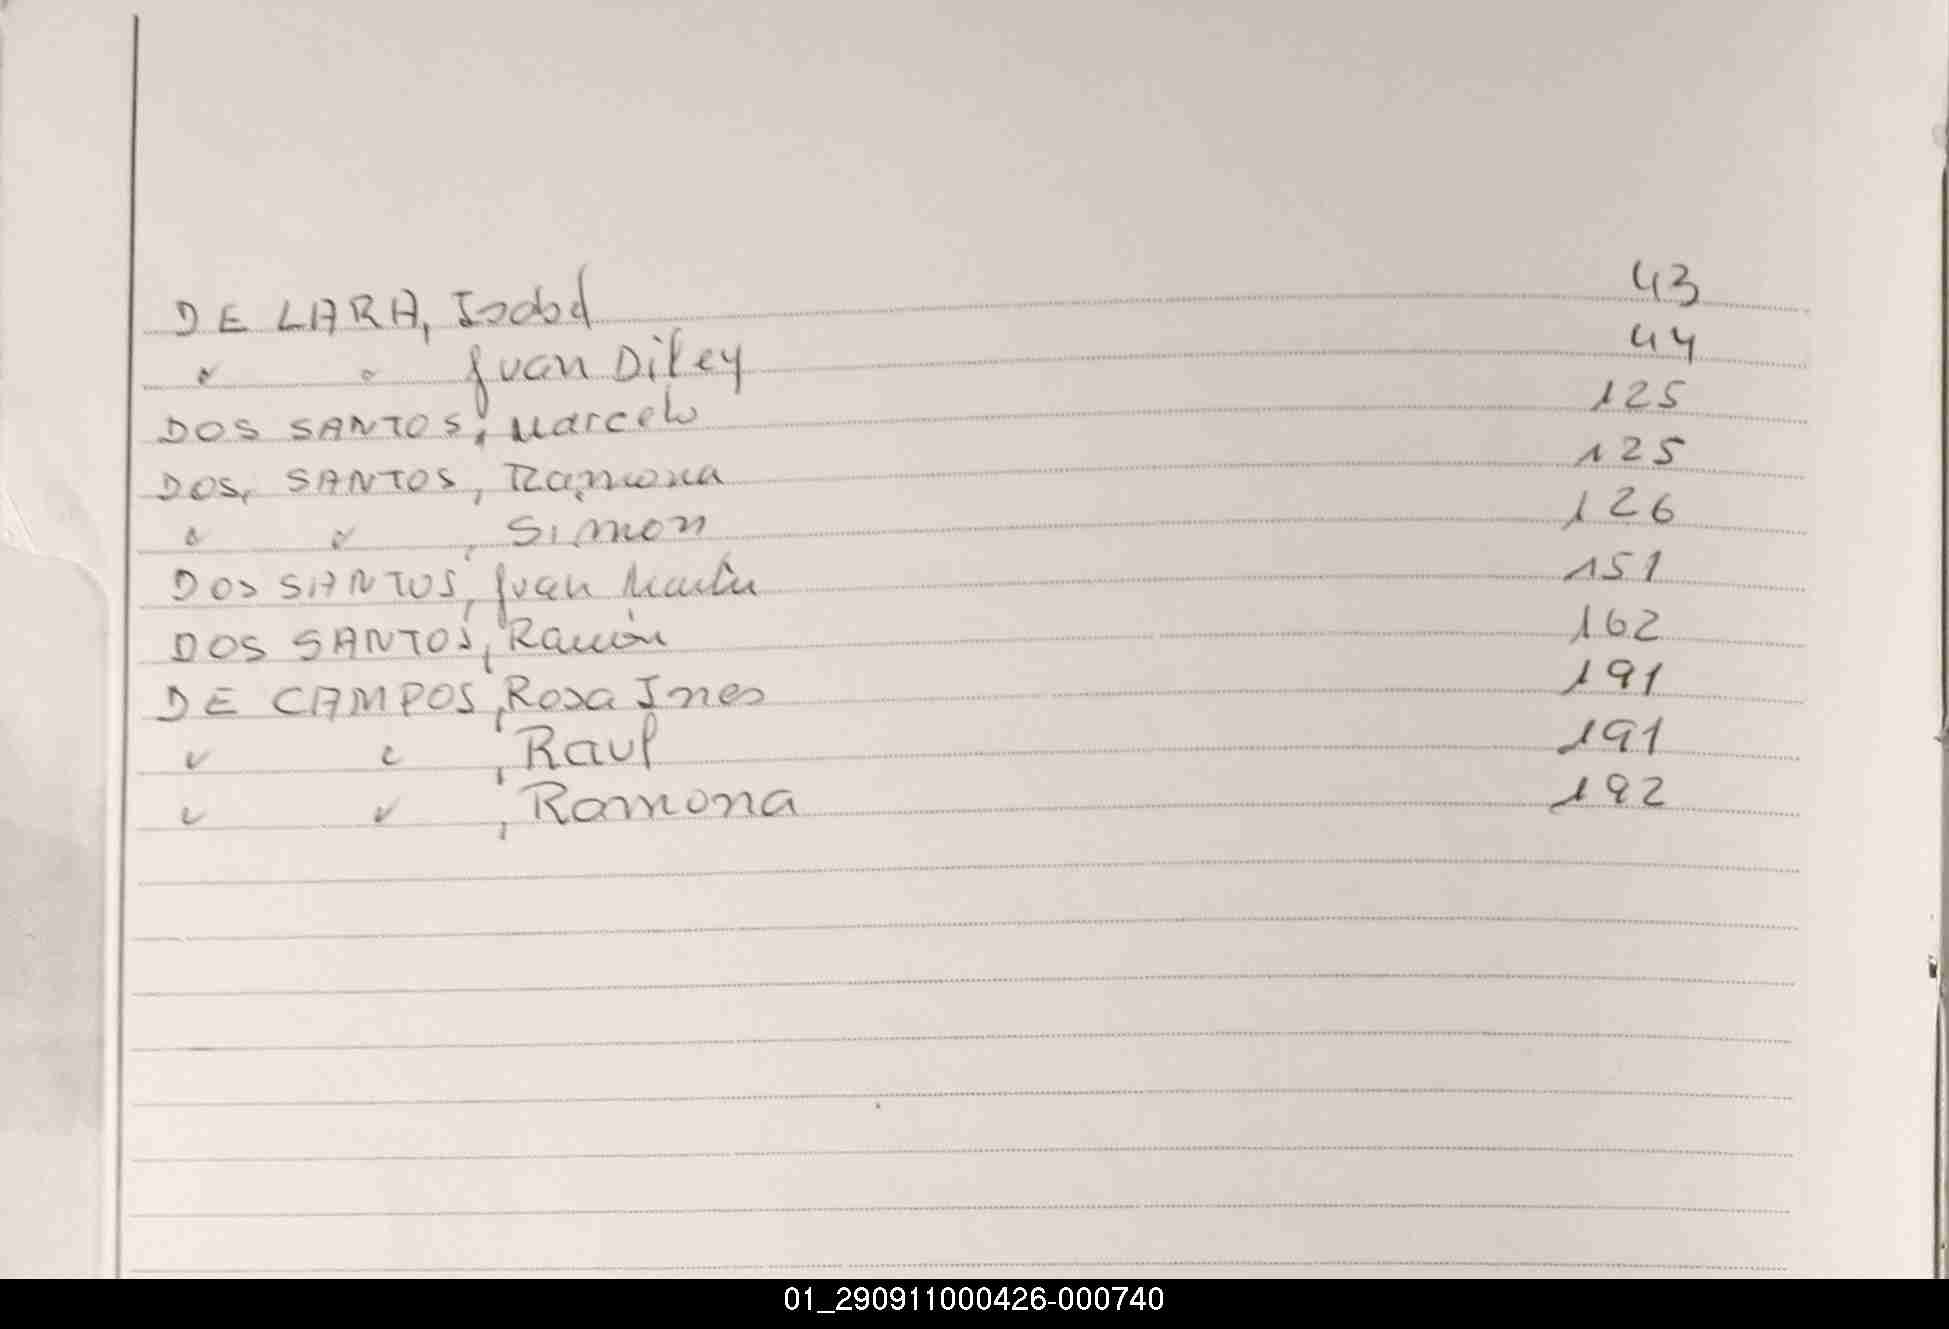 DE LARA, Isabel 43
" " Juan Diley 44
DOS SANTOS, Marcelo 125
DOS, SANTOS, Ramona 125
" " , Simon 126
DOS SANTOS, Juan Martin 151
DOS SANTOS, Ramón 162
DE CAMPOS, Rosa Ines 191
" " , Raul 191
" " , Ramona 192
01_290911000426-000740